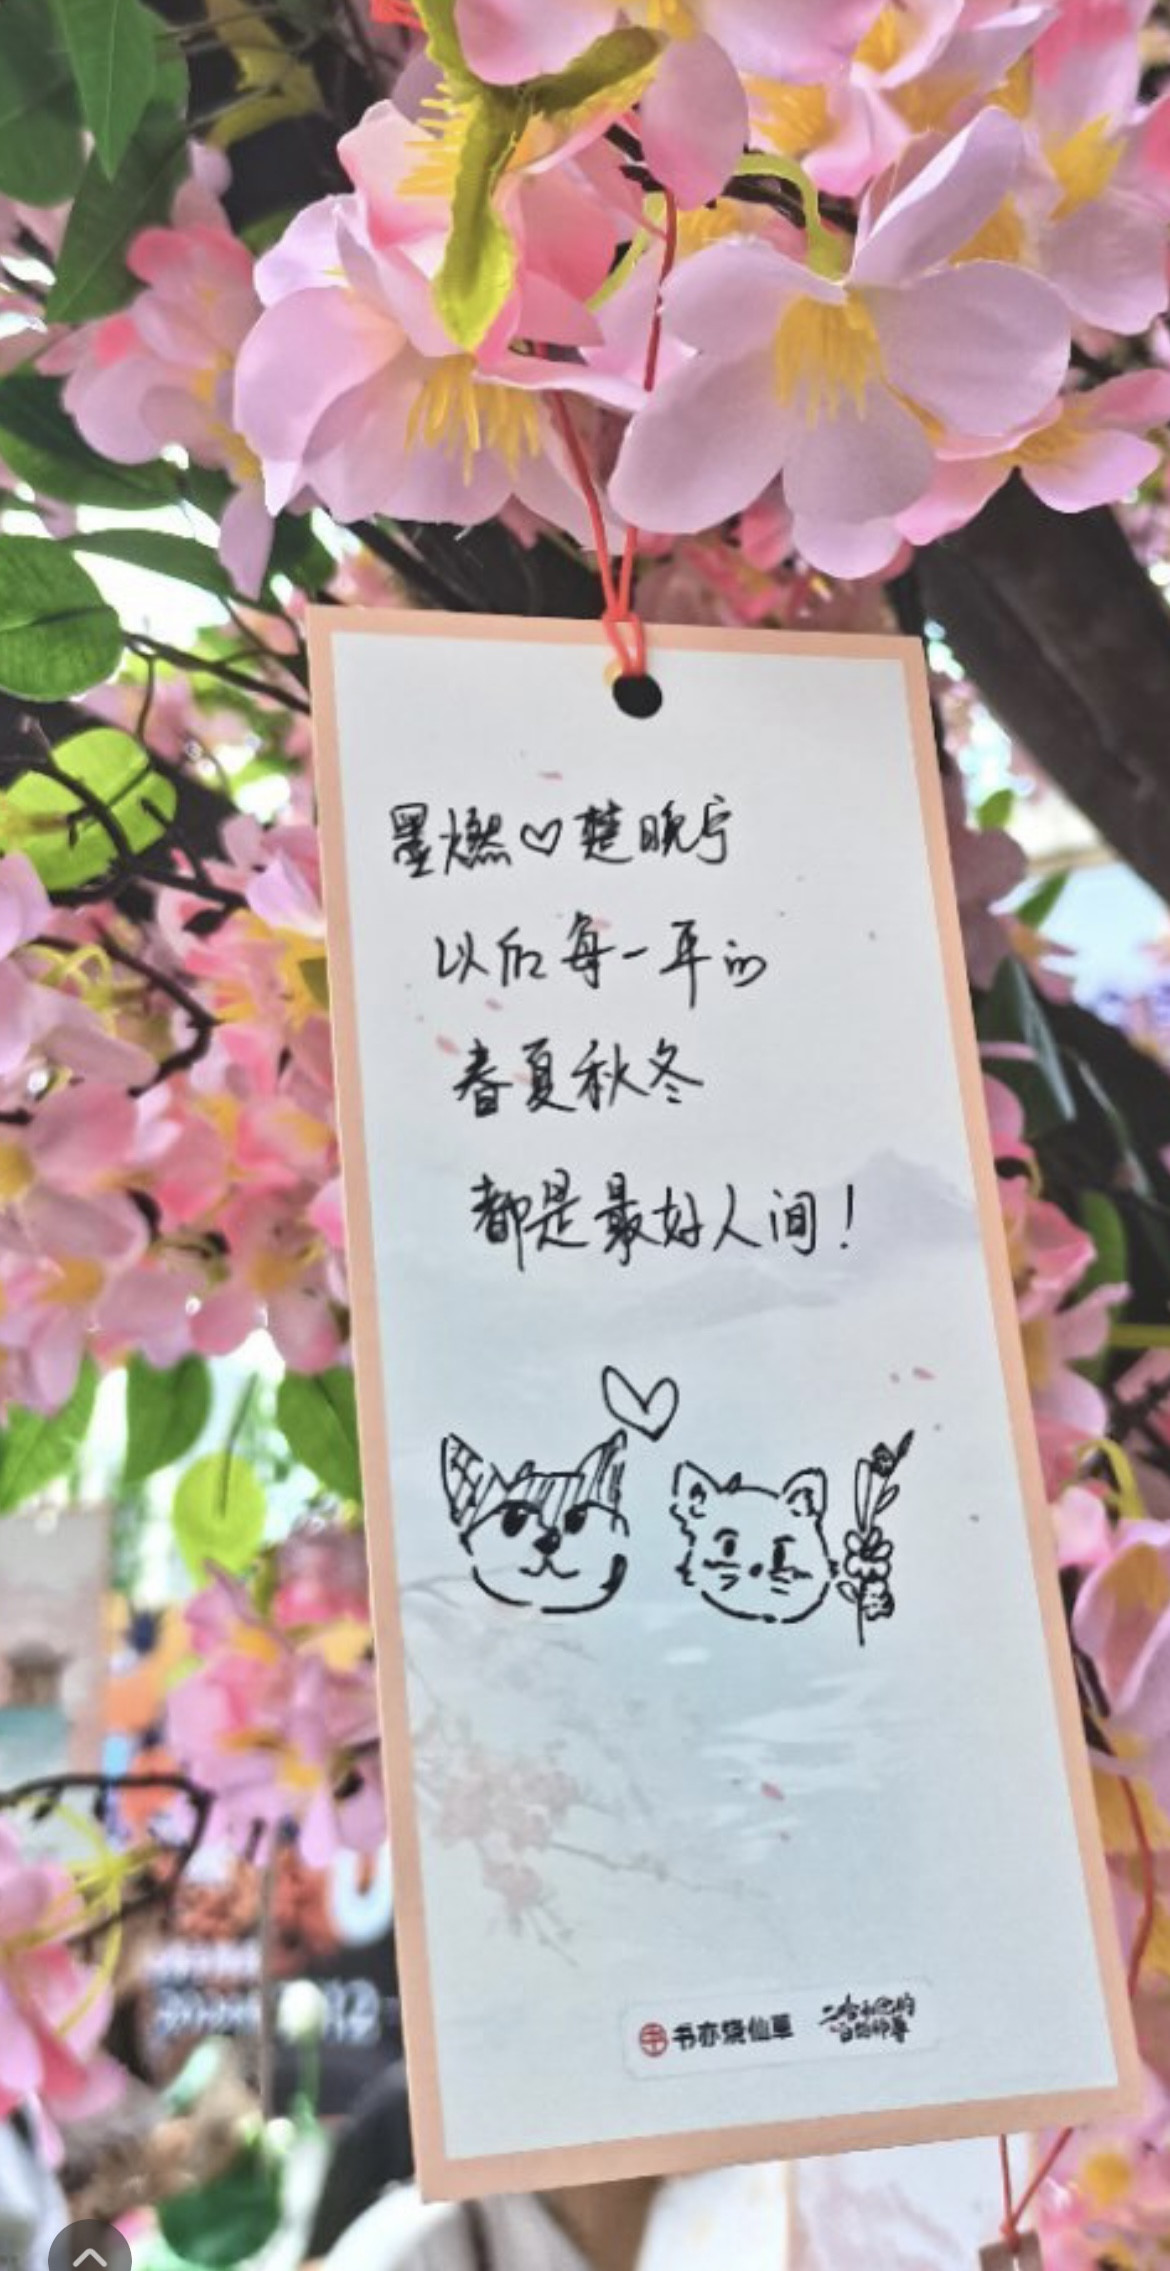 墨燃♡楚晚宁
以后每一年的
春夏秋冬
都是最好人间！
书亦烧仙草 二哈和他的白猫师尊